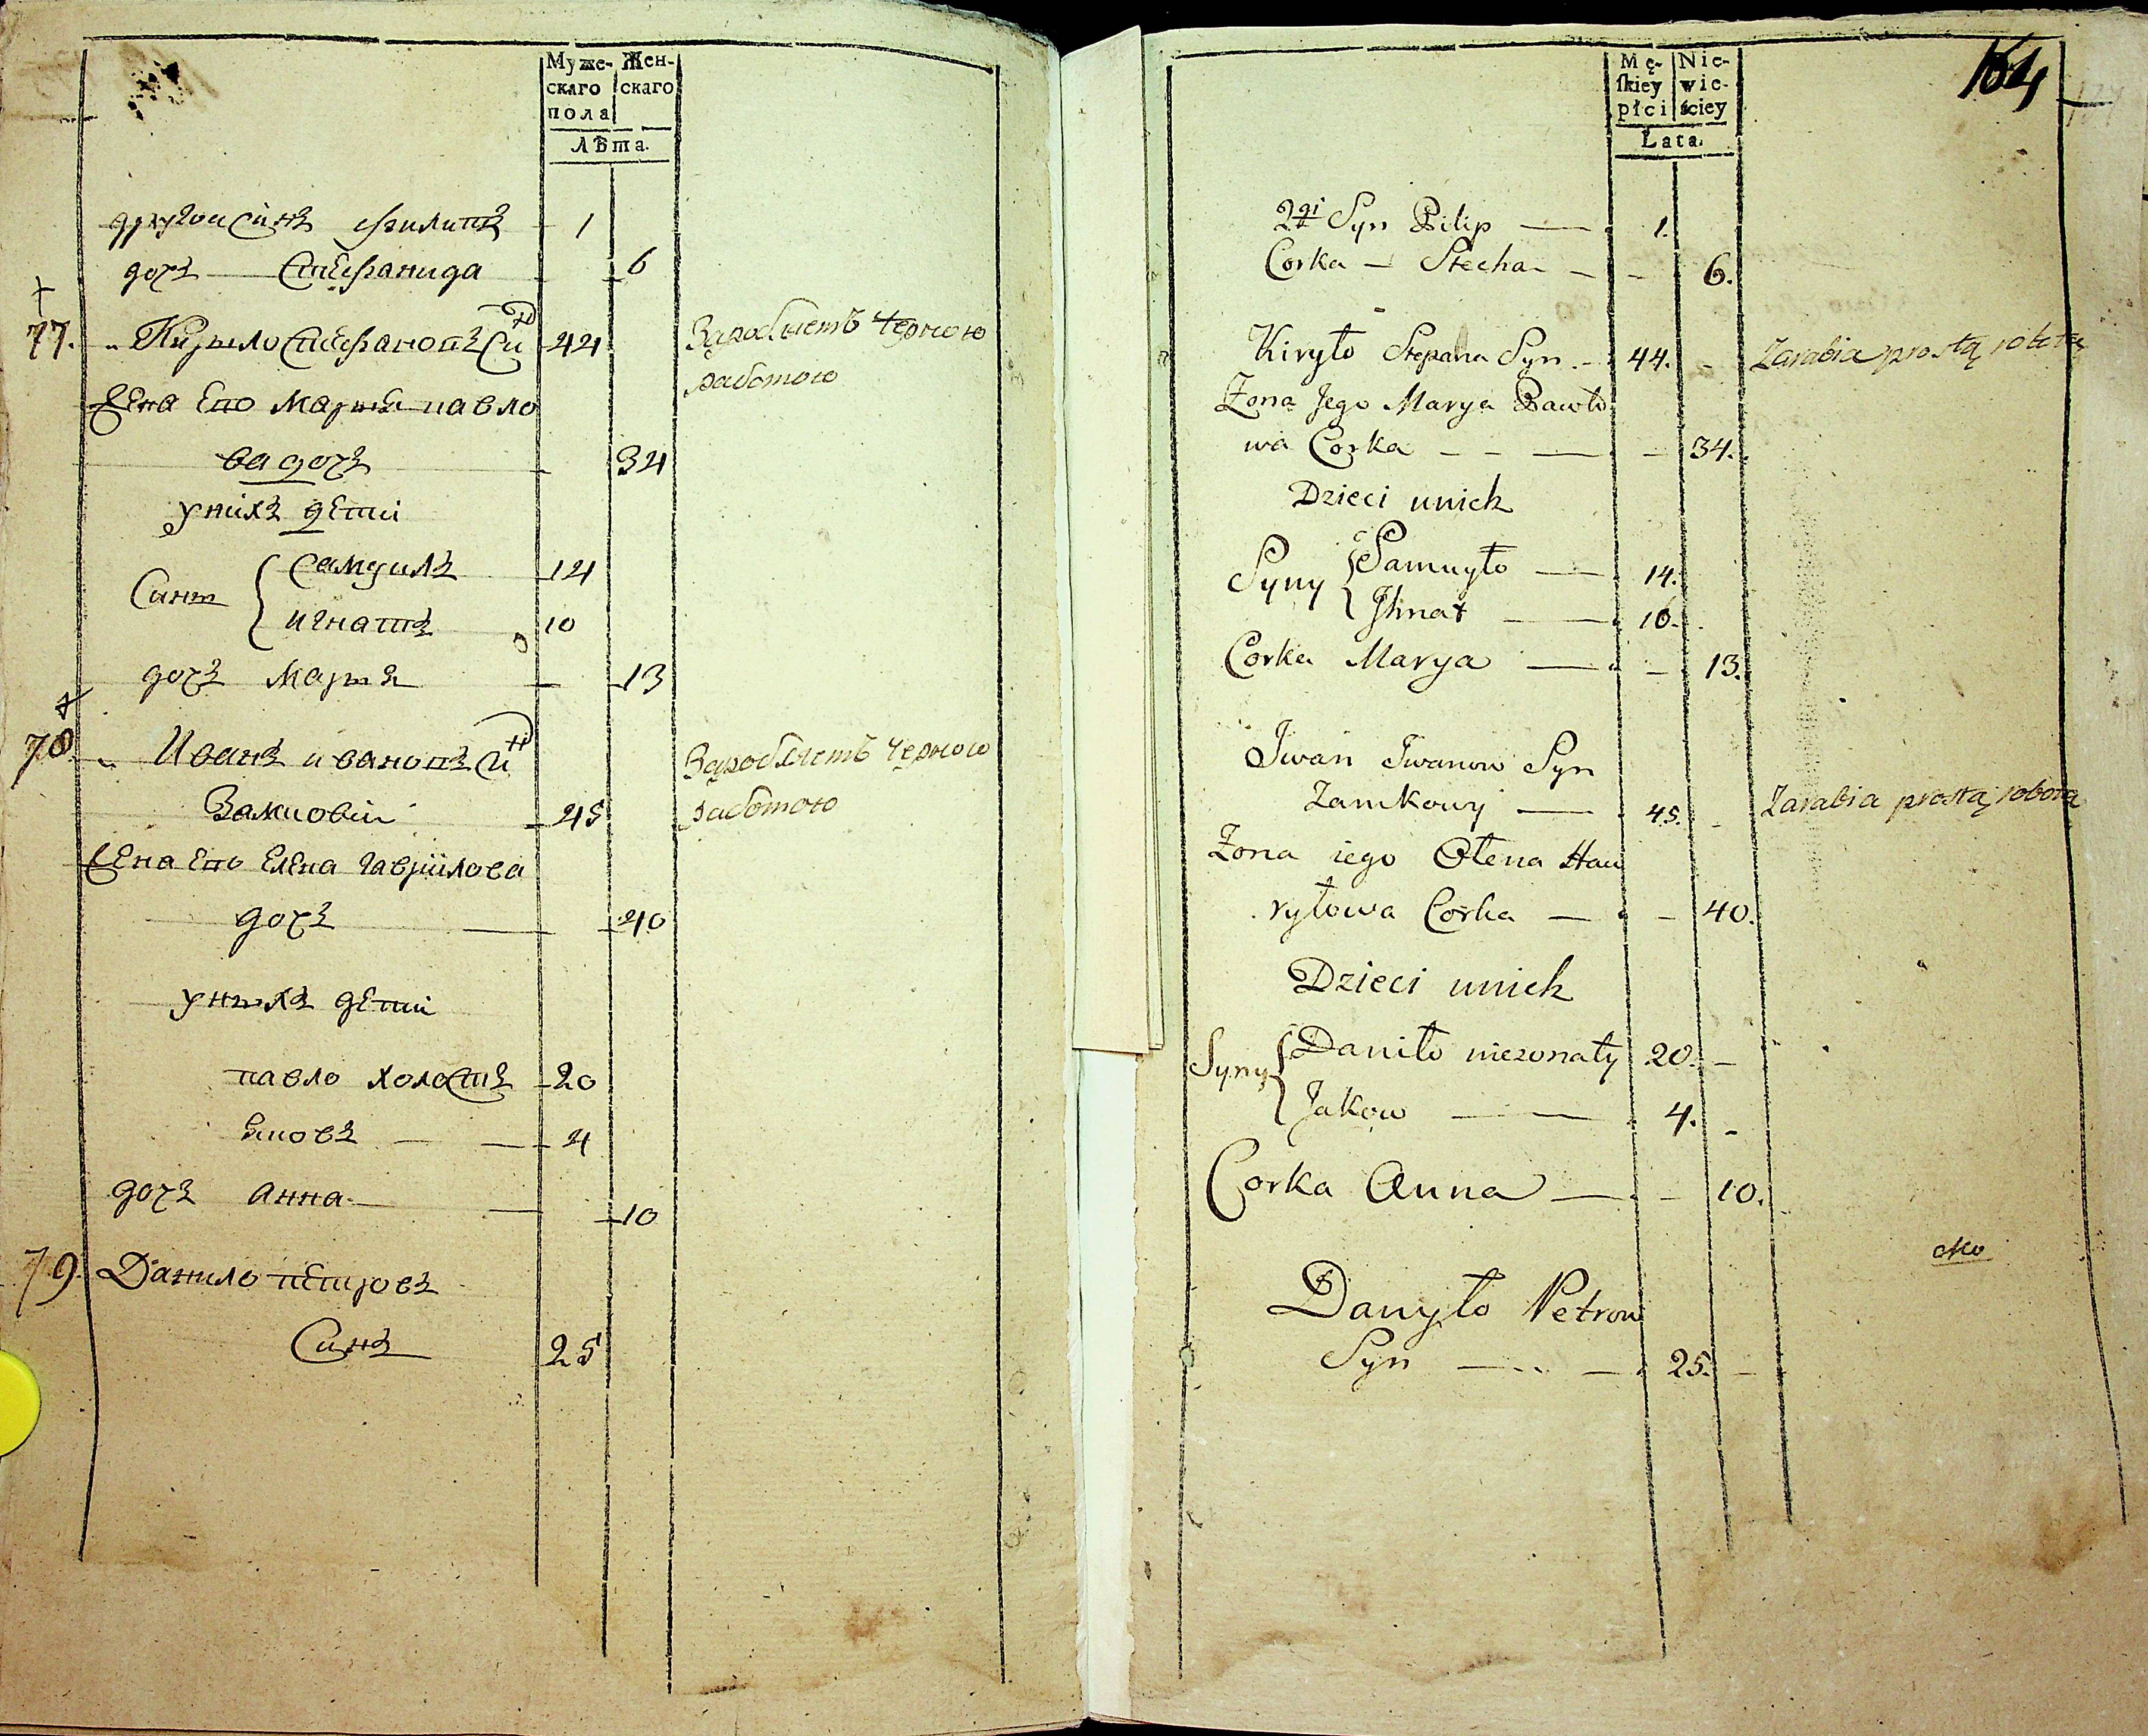 Муже-
скаго
пола
Жен-
скаго
Лѣта.
другои синъ филипъ 1
дочъ Стефанида 6
77. Кирило Стефановъ Синъ 44
Заробляетъ Черною
работою
Жена его Марія павло
ва дочъ 34
у нихъ дети
Сини
Самуилъ 14
игнатъ 10
дочъ Марія 13
78. Иванъ ивановъ Синъ
Замковій 45
Заробляетъ Черною
работою
Жена его Елена гаврилова
дочъ 40
у нихъ дети
павло холостъ 20
Яковъ 4
дочъ анна 10
79. Данило петровъ
Синъ 25
Mę-
ſkiey
płci
Nie-
wie-
ściey
Lata.
164
2gi Syn Pilip 1.
Corka Stecha 6.
Kiryło Stepana Syn 44. Zarabia prostą robotą
Zona Jego Marya Pawło
wa Corka 34.
Dzieci unich
Syny
Samuyło 14.
Jhnat 10.
Corka Marya 13.
Jwan Jwanow Syn
Zamkowy 45. Zarabia prostą robotą
Zona iego Ołena Haw
ryłowa Corka 40.
Dzieci unich
Syny
Daniło niezonaty 20.
Jakow 4.
Corka Anna 10.
Danyło Petrow
Syn 25.